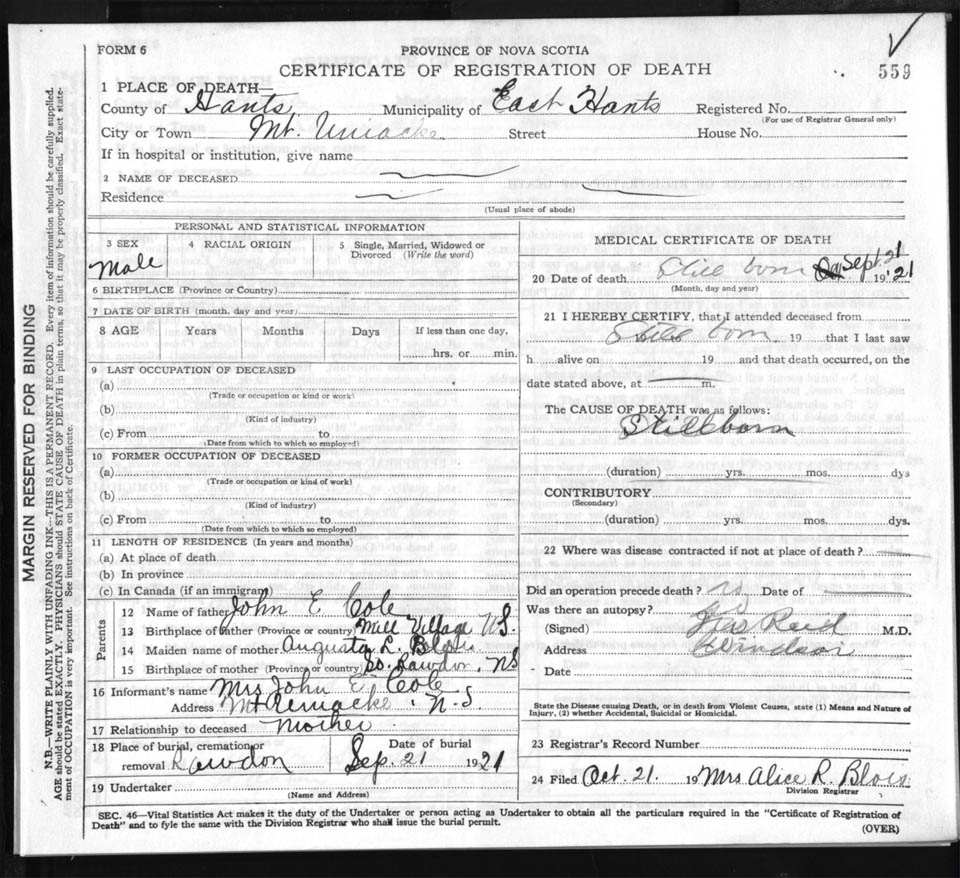 FORM 6
PROVINCE OF NOVA SCOTIA
CERTIFICATE OF REGISTRATION OF DEATH
559
1 PLACE OF DEATH—
County of Hants Municipality of East Hants Registered No.
(For use of Registrar General only)
City or Town Mt. Uniacke Street House No.
If in hospital or institution, give name
2 NAME OF DECEASED
Residence
(Usual place of abode)
PERSONAL AND STATISTICAL INFORMATION
3 SEX 4 RACIAL ORIGIN 5 Single, Married, Widowed or Divorced (Write the word)
Male
6 BIRTHPLACE (Province or Country)
7 DATE OF BIRTH (month, day and year)
8 AGE Years Months Days If less than one day,
hrs. or min.
9 LAST OCCUPATION OF DECEASED
(a)
(Trade or occupation or kind or work)
(b)
(Kind of industry)
(c) From to
(Date from which to which so employed)
10 FORMER OCCUPATION OF DECEASED
(a)
(Trade or occupation or kind of work)
(b)
(Kind of industry)
(c) From to
(Date from which to which so employed)
11 LENGTH OF RESIDENCE (In years and months)
(a) At place of death
(b) In province
(c) In Canada (if an immigrant)
Parents
12 Name of father John E Cole
13 Birthplace of Father (Province or country) Mill Village N.S.
14 Maiden name of mother Augusta L. Blois
15 Birthplace of mother (Province or country) So. Rawdon, NS
16 Informant's name Mrs John E. Cole
Address Mt Uniacke, N.S.
17 Relationship to deceased Mother
18 Place of burial, cremation or removal Rawdon Date of burial Sep. 21 1921
19 Undertaker
(Name and Address)
MEDICAL CERTIFICATE OF DEATH
20 Date of death Still born Sept. 21 19 21
(Month, day and year)
21 I HEREBY CERTIFY, that I attended deceased from
Still born, 19 that I last saw
h alive on 19 and that death occurred, on the
date stated above, at m.
The CAUSE OF DEATH was as follows:
Stillborn
(duration) yrs. mos. dys
CONTRIBUTORY
(Secondary)
(duration) yrs. mos. dys.
22 Where was disease contracted if not at place of death?
Did an operation precede death? no Date of
Was there an autopsy?
(Signed) Jas Reid M.D.
Address Windsor
Date
State the Disease causing Death, or in death from Violent Causes, state (1) Means and Nature of
Injury, (2) whether Accidental, Suicidal or Homicidal.
23 Registrar's Record Number
24 Filed Oct. 21. 19 Mrs Alice R. Blois
Division Registrar
SEC. 46—Vital Statistics Act makes it the duty of the Undertaker or person acting as Undertaker to obtain all the particulars required in the "Certificate of Registration of
Death" and to fyle the same with the Division Registrar who shall issue the burial permit.
(OVER)
MARGIN RESERVED FOR BINDING
N.B.—WRITE PLAINLY WITH UNFADING INK—THIS IS A PERMANENT RECORD. Every item of information should be carefully supplied.
AGE should be stated EXACTLY. PHYSICIANS should STATE CAUSE OF DEATH in plain terms, so that it may be properly classified. Exact state-
ment of OCCUPATION is very important. See instructions on back of Certificate.